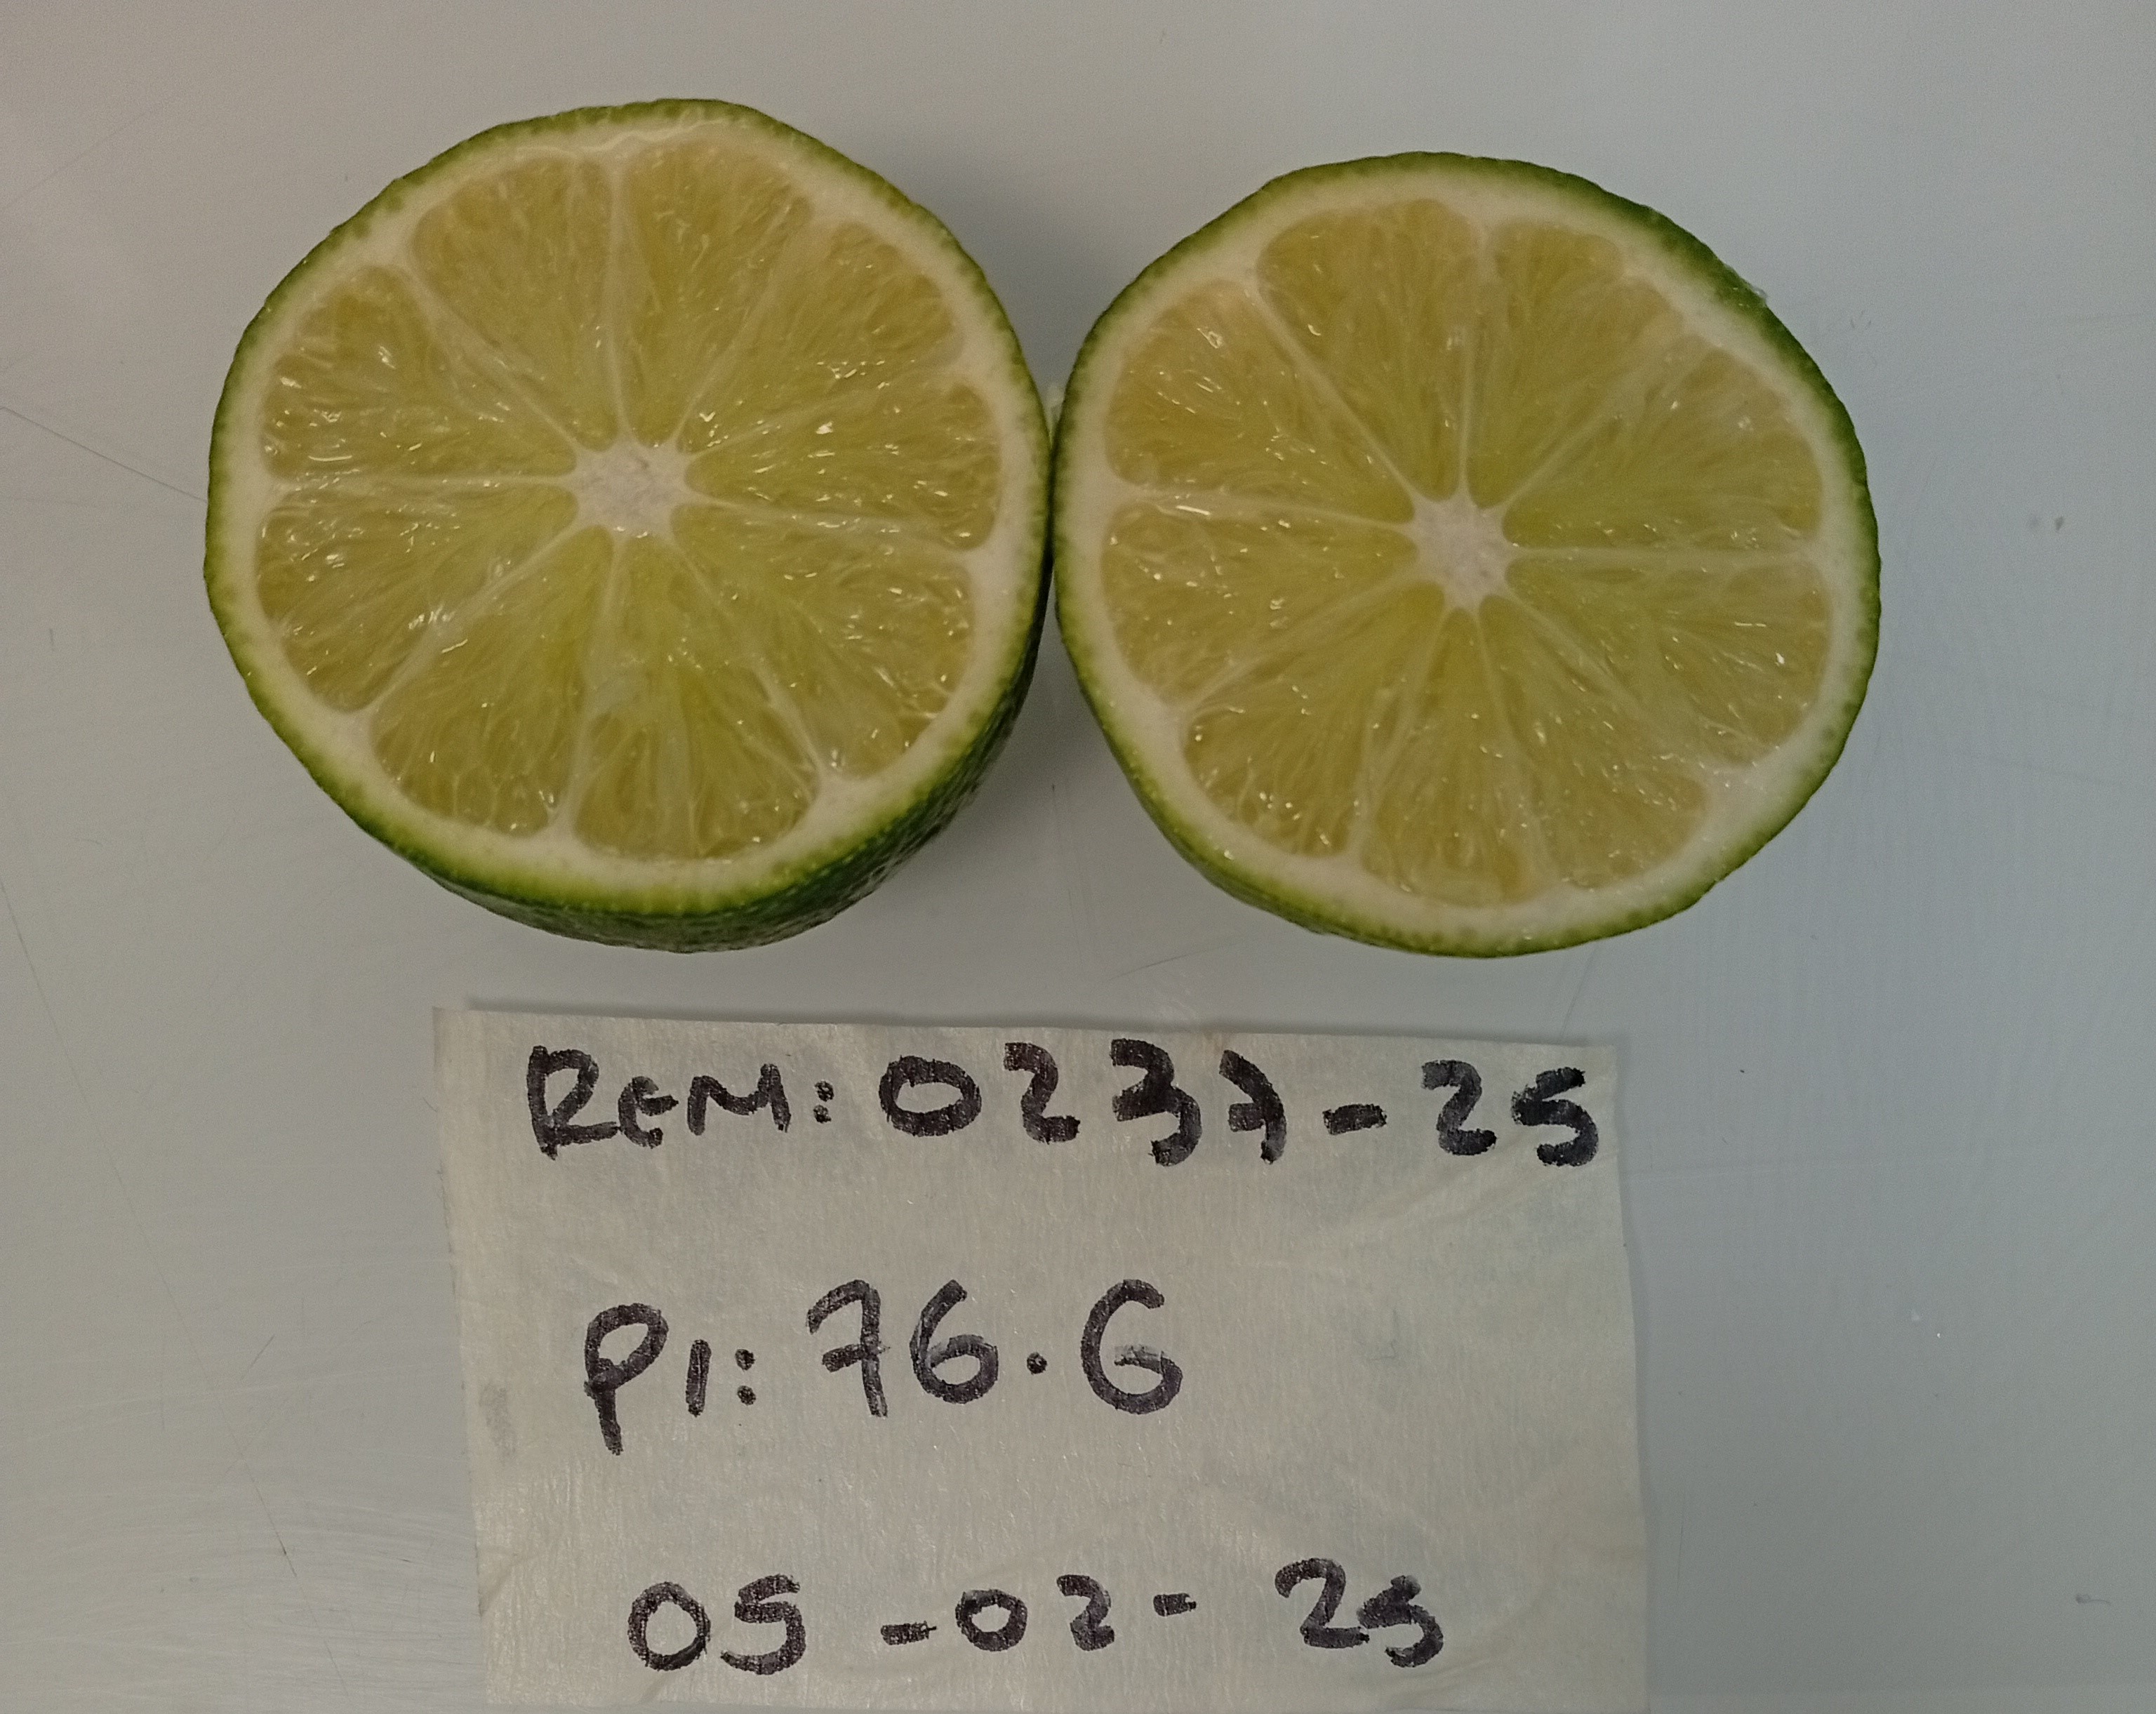 REM: 0237-25
PI: 76.6
05-02-25